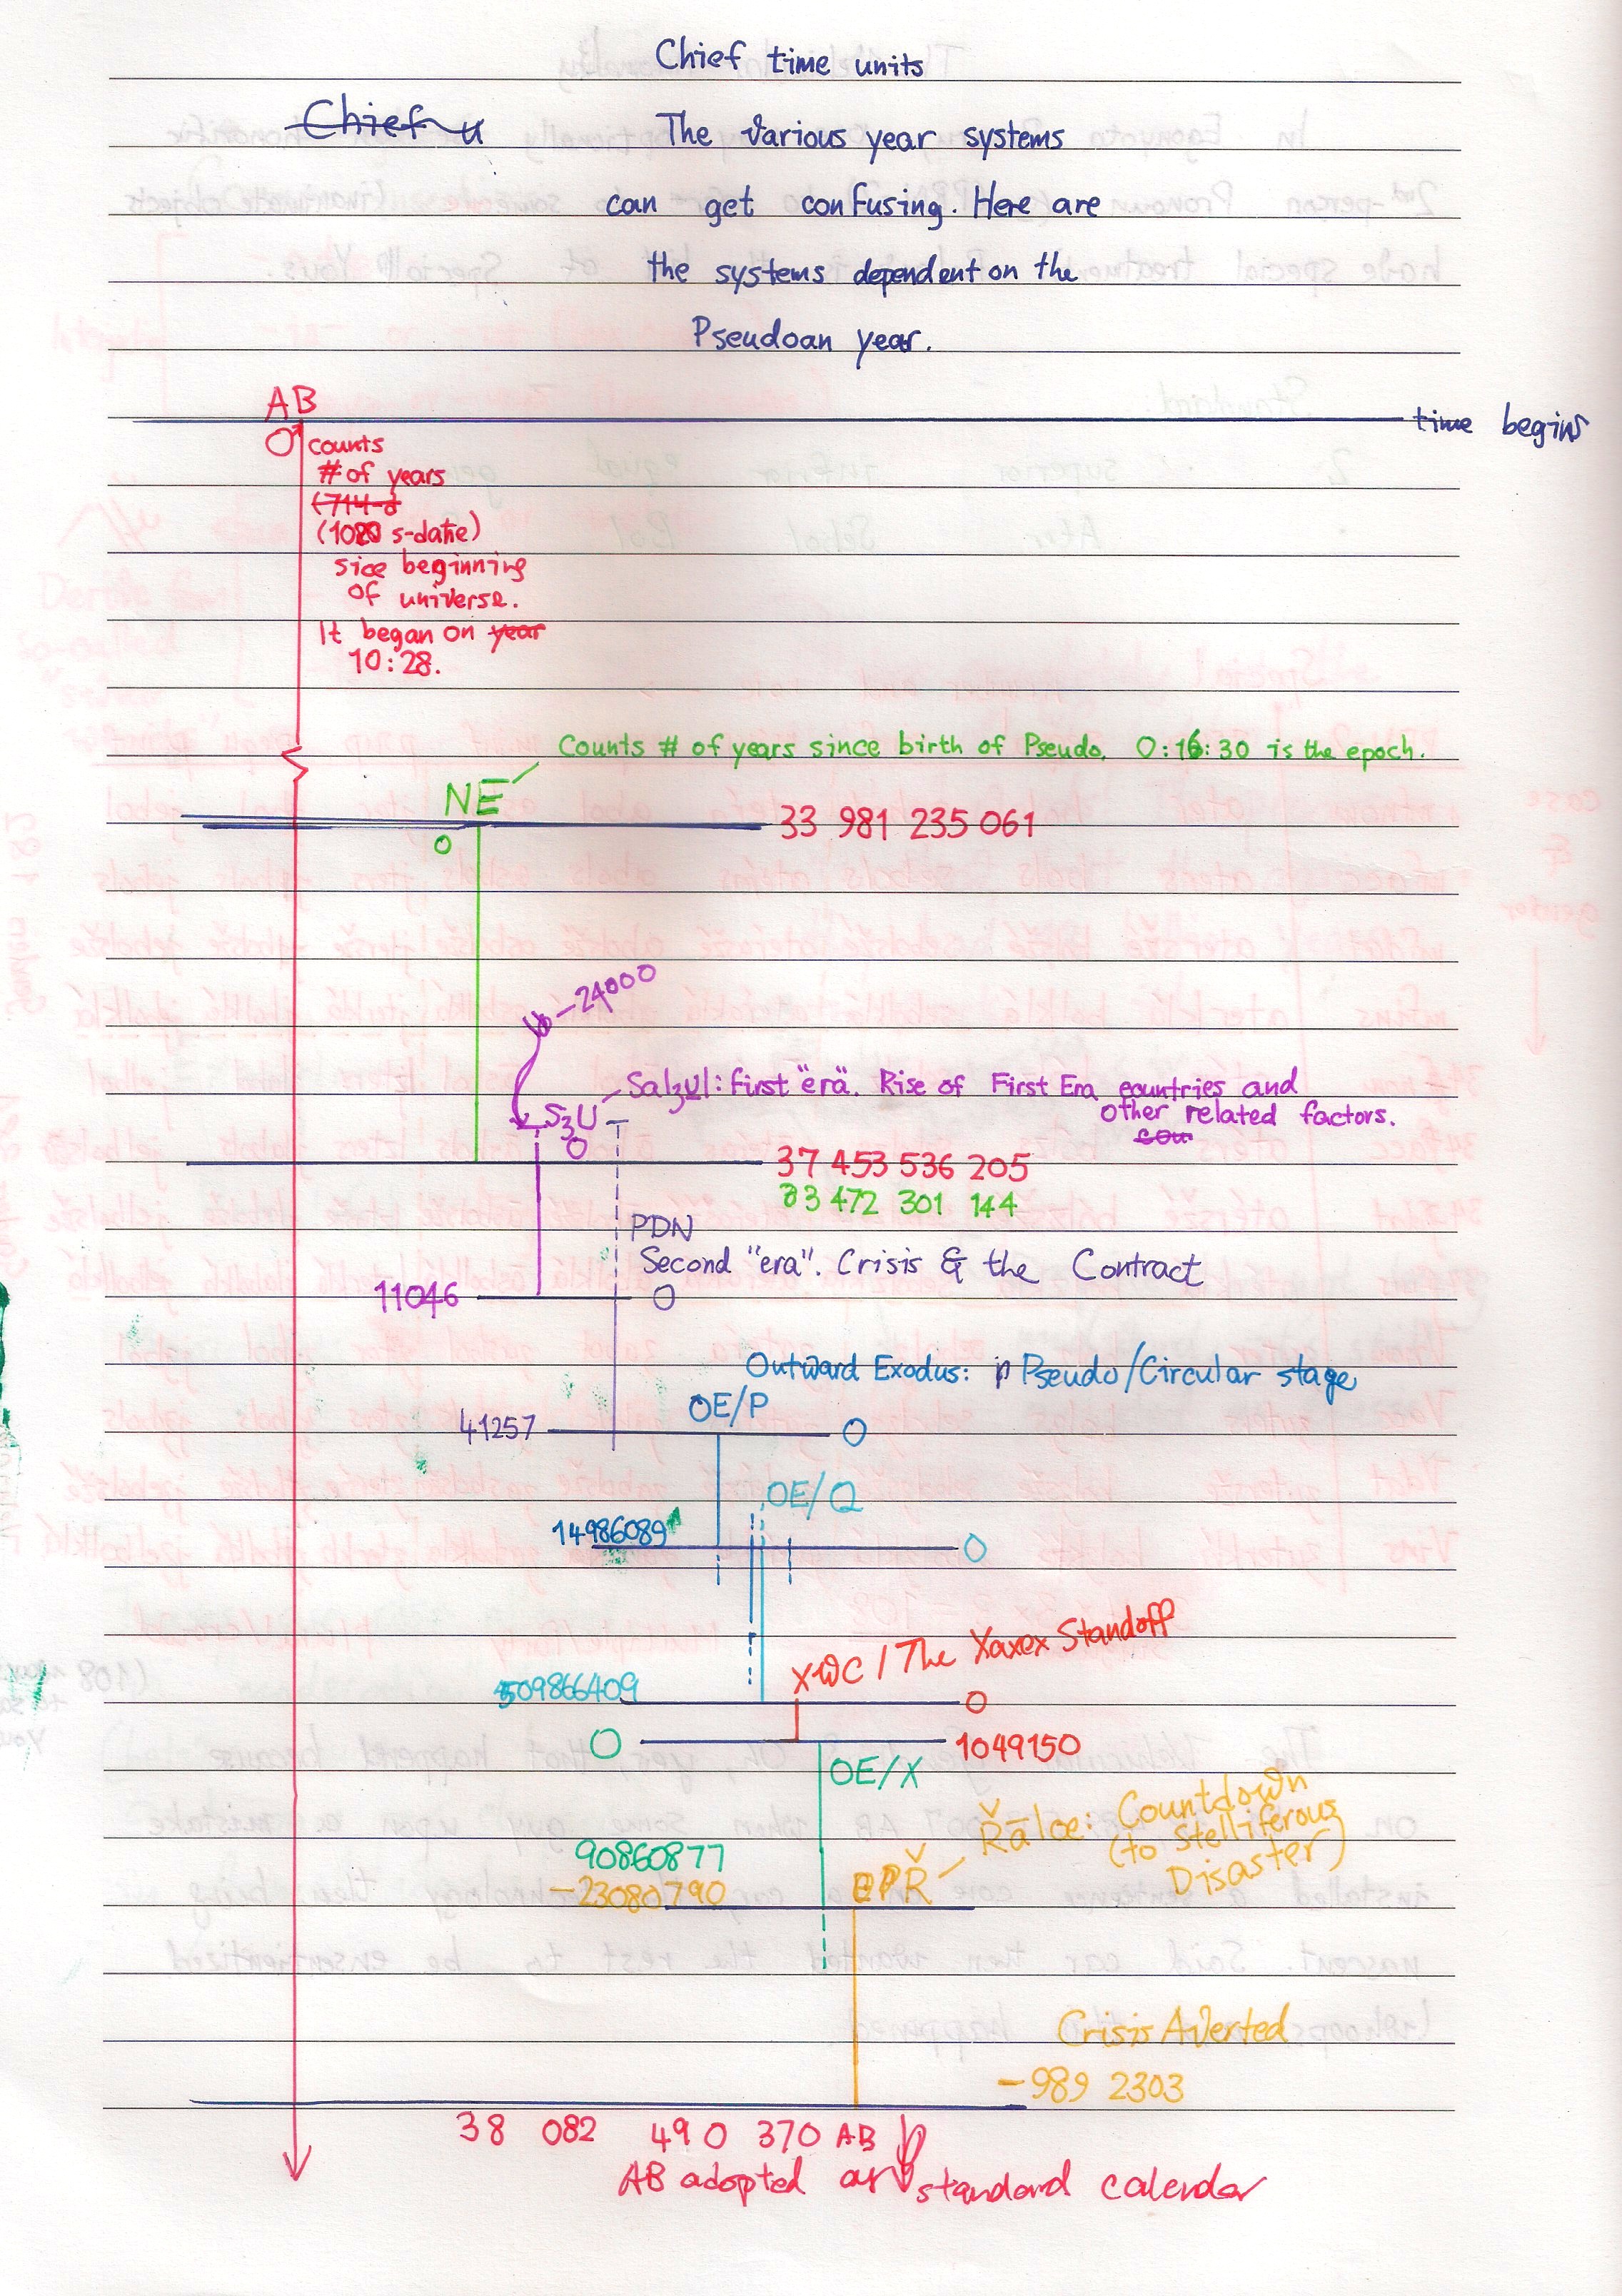 Chief time units
Chief u
The various year systems
can get confusing. Here are
the systems dependent on the
Pseudoan year.
AB
time begins
0
counts
# of years
(714-d
(1020 s-date)
sice beginning
of universe.
It began on year
10:28.
Counts # of years since birth of Pseudo. 0:16:30 is the epoch.
NE
33 981 235 061
0
-24000
Salzul: first "era". Rise of First Era countries and
other related factors.
cou
SzU
0
37 453 536 205
3 472 301 144
PDN
Second "era". Crisis & the Contract
11046
0
Outward Exodus: Pseudo/Circular stage
OE/P
41257
0
OE/Q
14986089
0
XWC / The Xaxex Standoff
509866409
0
0
1049150
OE/X
Řāloe: Countdown
(to Stelliferous
Disaster)
90860877
-23080790
PŘ
Crisis Averted
-989 2303
38 082 490 370 AB
AB adopted as standard calendar